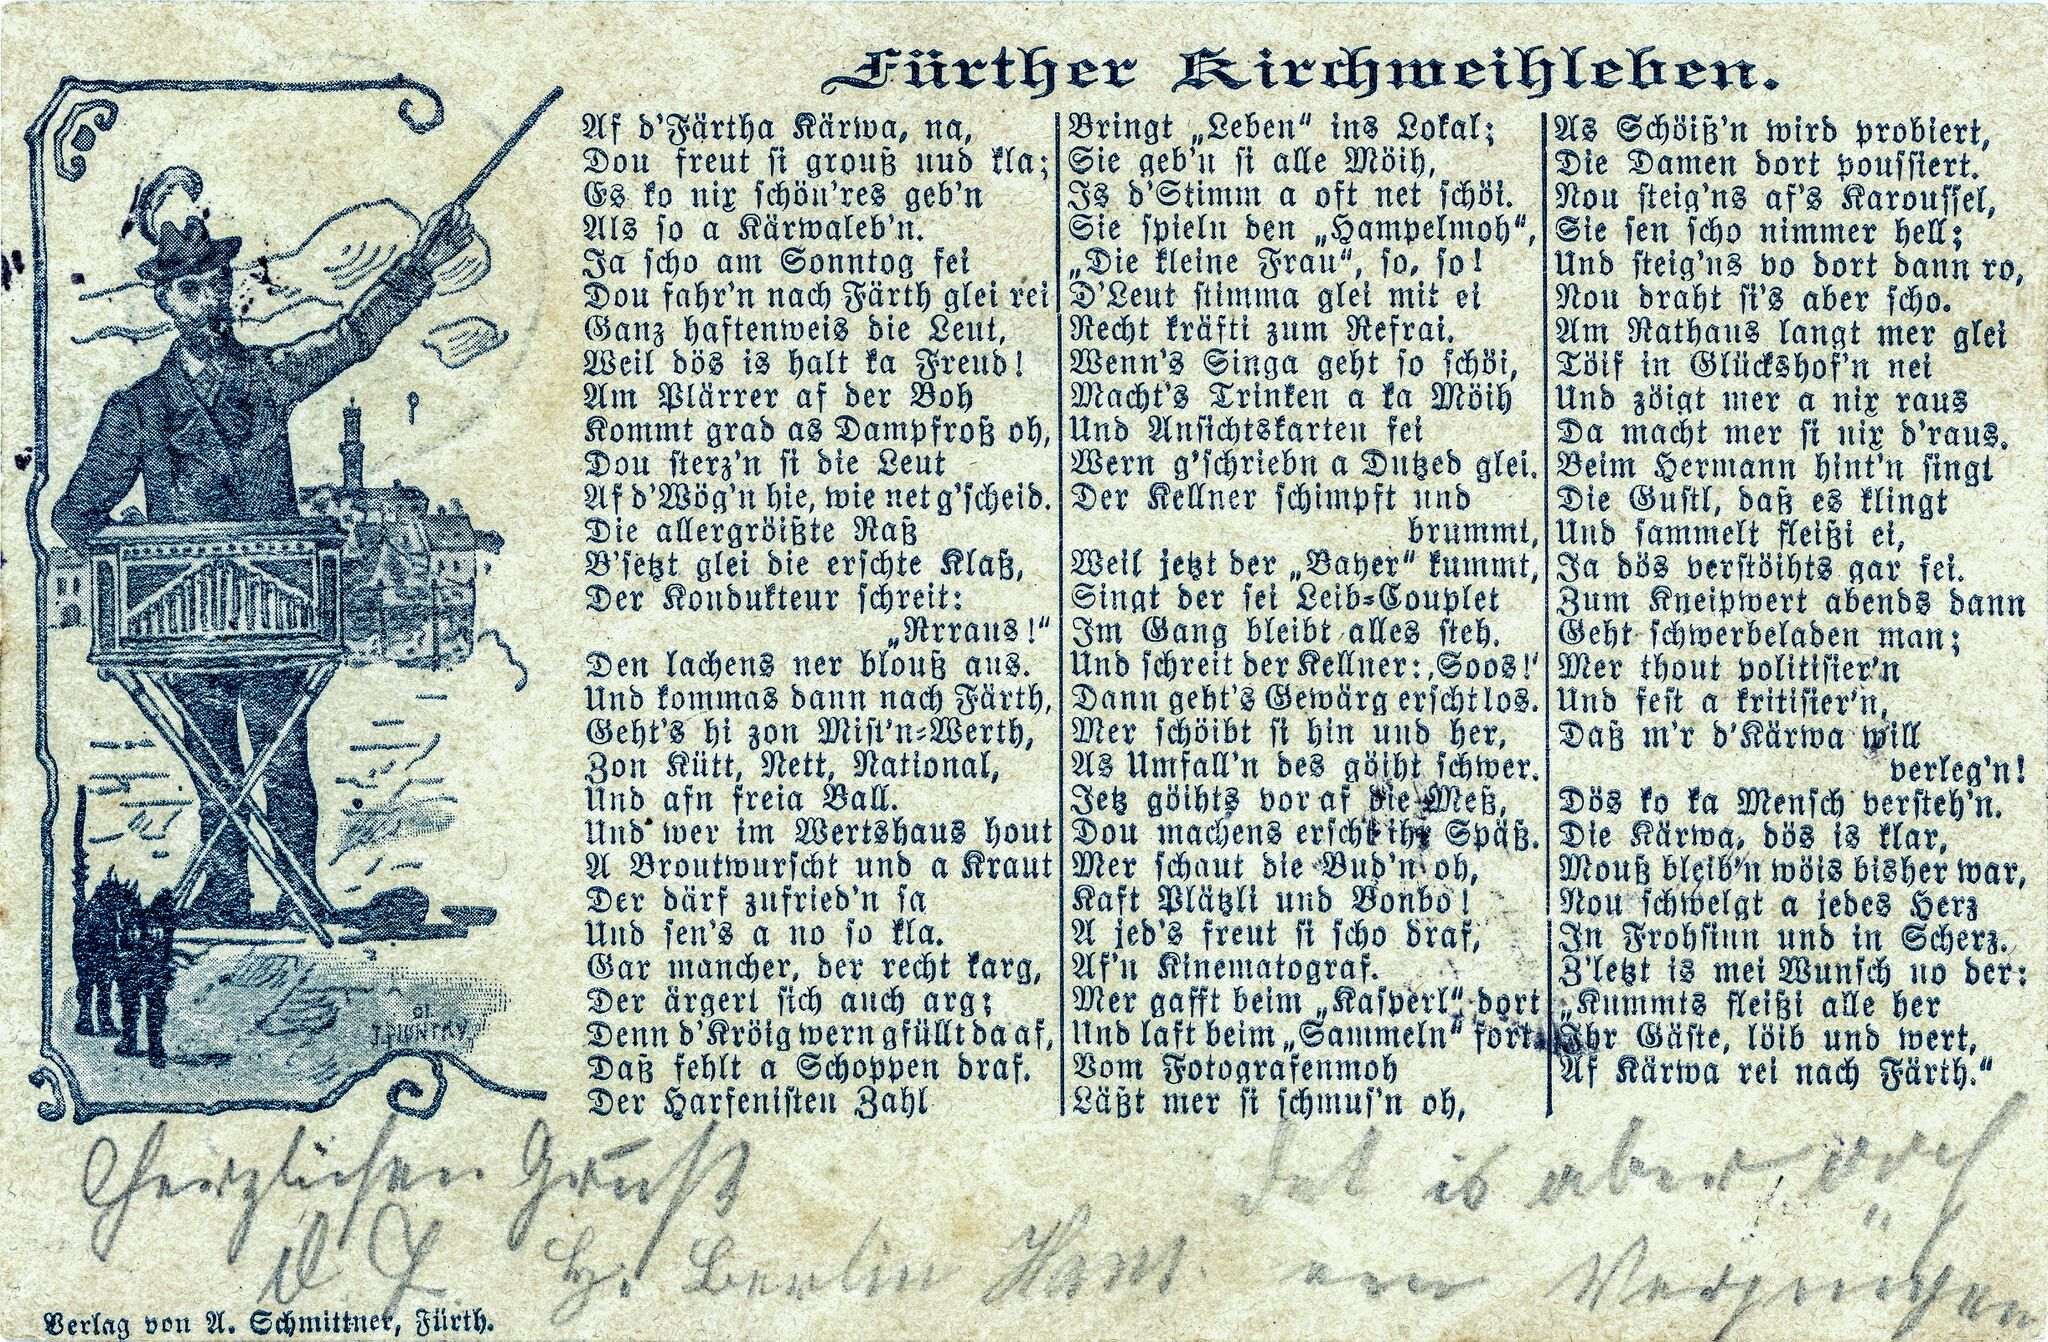 Fürther Kirchweihleben.
Af d'Färtha Kärwa, na,
Dou freut si grouß und kla;
Es ko nix schön'res geb'n
Als so a Kärwaleb'n.
Ja scho am Sonntog fei
Dou fahr'n nach Färth glei rei
Ganz haftenweis die Leut,
Weil dös is halt ka Freud!
Am Plärrer af der Boh
Kommt grad as Dampfroß oh,
Dou sterz'n si die Leut
Af d'Wög'n hie, wie net g'scheid.
Die allergröißte Raß
B'setzt glei die erschte Klaß,
Der Kondukteur schreit:
„Rrraus!“
Den lachens ner blouß aus.
Und kommas dann nach Färth,
Geht's hi zon Mist'n=Werth,
Zon Kütt, Nett, National,
Und afn freia Ball.
Und wer im Wertshaus hout
A Broutwurscht und a Kraut
Der därf zufried'n sa
Und sen's a no so kla.
Gar mancher, der recht karg,
Der ärgert sich auch arg;
Denn d'Kröig wern gfüllt da af,
Daß fehlt a Schoppen draf.
Der Harfenisten Zahl
Bringt „Leben“ ins Lokal;
Sie geb'n si alle Möih,
Is d'Stimm a oft net schöi.
Sie spieln den „Hampelmoh“,
„Die kleine Frau“, so, so!
D'Leut stimma glei mit ei
Recht kräfti zum Refrai.
Wenn's Singa geht so schöi,
Macht's Trinken a ka Möih
Und Ansichtskarten fei
Wern g'schriebn a Dutzed glei.
Der Kellner schimpft und
brummt,
Weil jetzt der „Bayer“ kummt,
Singt der sei Leib=Couplet
Im Gang bleibt alles steh.
Und schreit der Kellner: ‚Soos!‘
Dann geht's Gewärg erscht los.
Mer schöibt si hin und her,
As Umfall'n des göiht schwer.
Jetz göihts vor af die Meß,
Dou machens erscht ihr Späß.
Mer schaut die Bud'n oh,
Kaft Plätzli und Bonbo!
A jed's freut si scho draf,
Af'n Kinematograf.
Mer gafft beim „Kasperl“ dort
Und laft beim „Sammeln“ fort
Vom Fotografenmoh
Läßt mer si schmus'n oh,
As Schöiß'n wird probiert,
Die Damen dort poussiert.
Nou steig'ns af's Karoussel,
Sie sen scho nimmer hell;
Und steig'ns vo dort dann ro,
Nou draht si's aber scho.
Am Rathaus langt mer glei
Töif in Glückshof'n nei
Und zöigt mer a nix raus
Da macht mer si nix d'raus.
Beim Hermann hint'n singt
Die Gustl, daß es klingt
Und sammelt fleißi ei,
Ja dös verstöihts gar fei.
Zum Kneipwert abends dann
Geht schwerbeladen man;
Mer thout politisier'n
Und fest a kritisier'n,
Daß m'r d'Kärwa will
verleg'n!
Dös ko ka Mensch versteh'n.
Die Kärwa, dös is klar,
Mouß bleib'n wöis bisher war,
Nou schwelgt a jedes Herz
In Frohsinn und in Scherz.
Z'letzt is mei Wunsch no der:
„Kummts fleißi alle her
Ihr Gäste, löib und wert,
Af Kärwa rei nach Färth.“
Herzlichen Gruß
Det is aber
Berlin
ein Vergnügen
Verlag von A. Schmittner, Fürth.